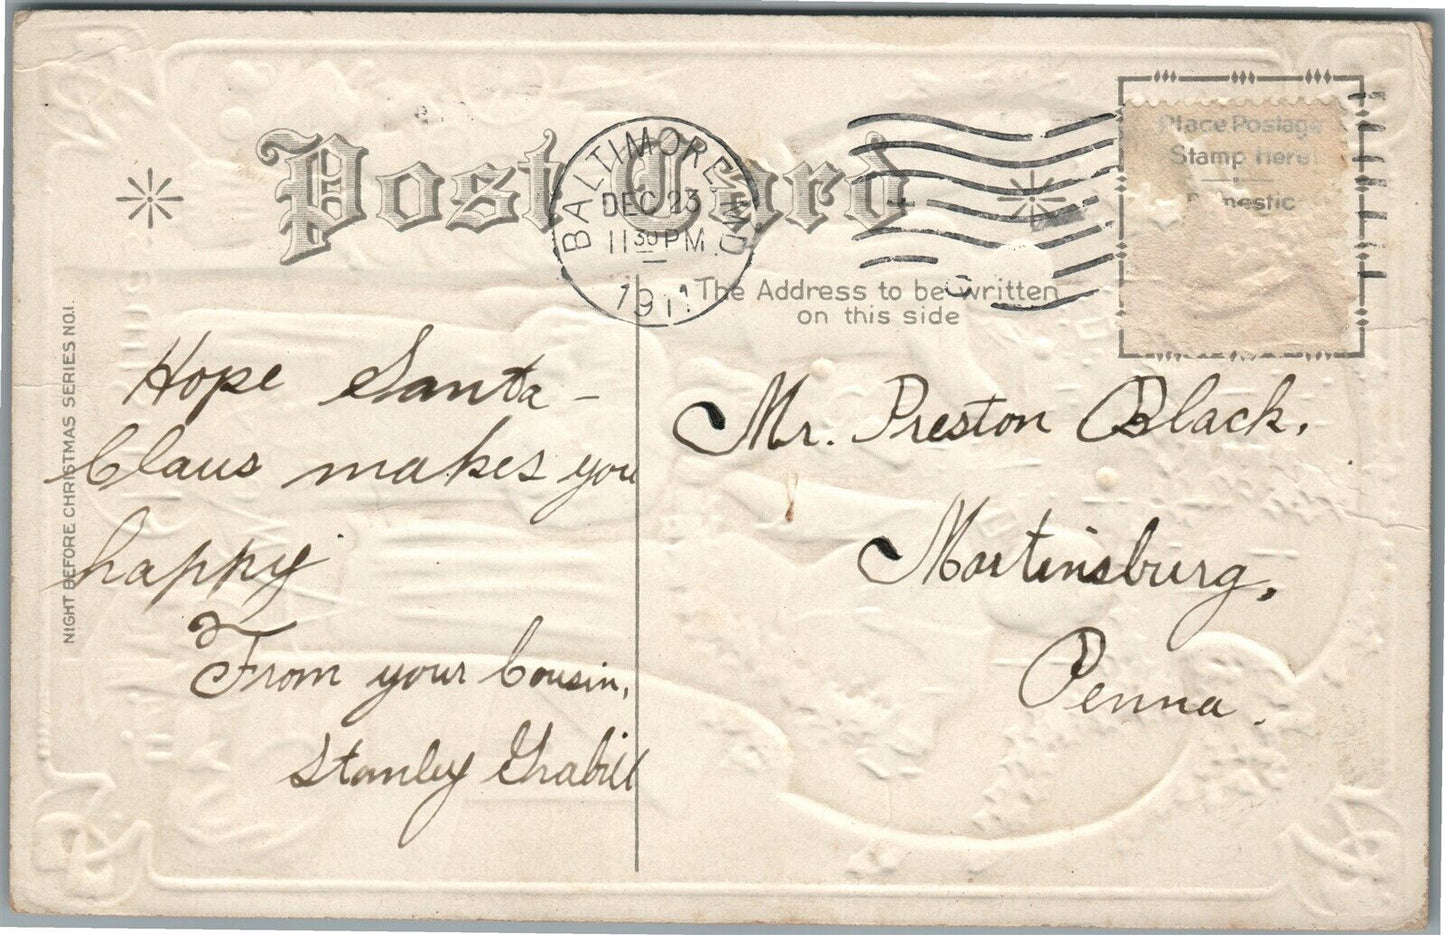 Post Card
BALTIMORE, MD.
DEC 23
11 30 PM
1911
Place Postage
Stamp Here
Domestic
The Address to be written
on this side
NIGHT BEFORE CHRISTMAS SERIES NO.1.
Hope Santa-
Claus makes you
happy
From your Cousin,
Stanley Grabill
Mr. Preston Black.
Martinsburg,
Penna.